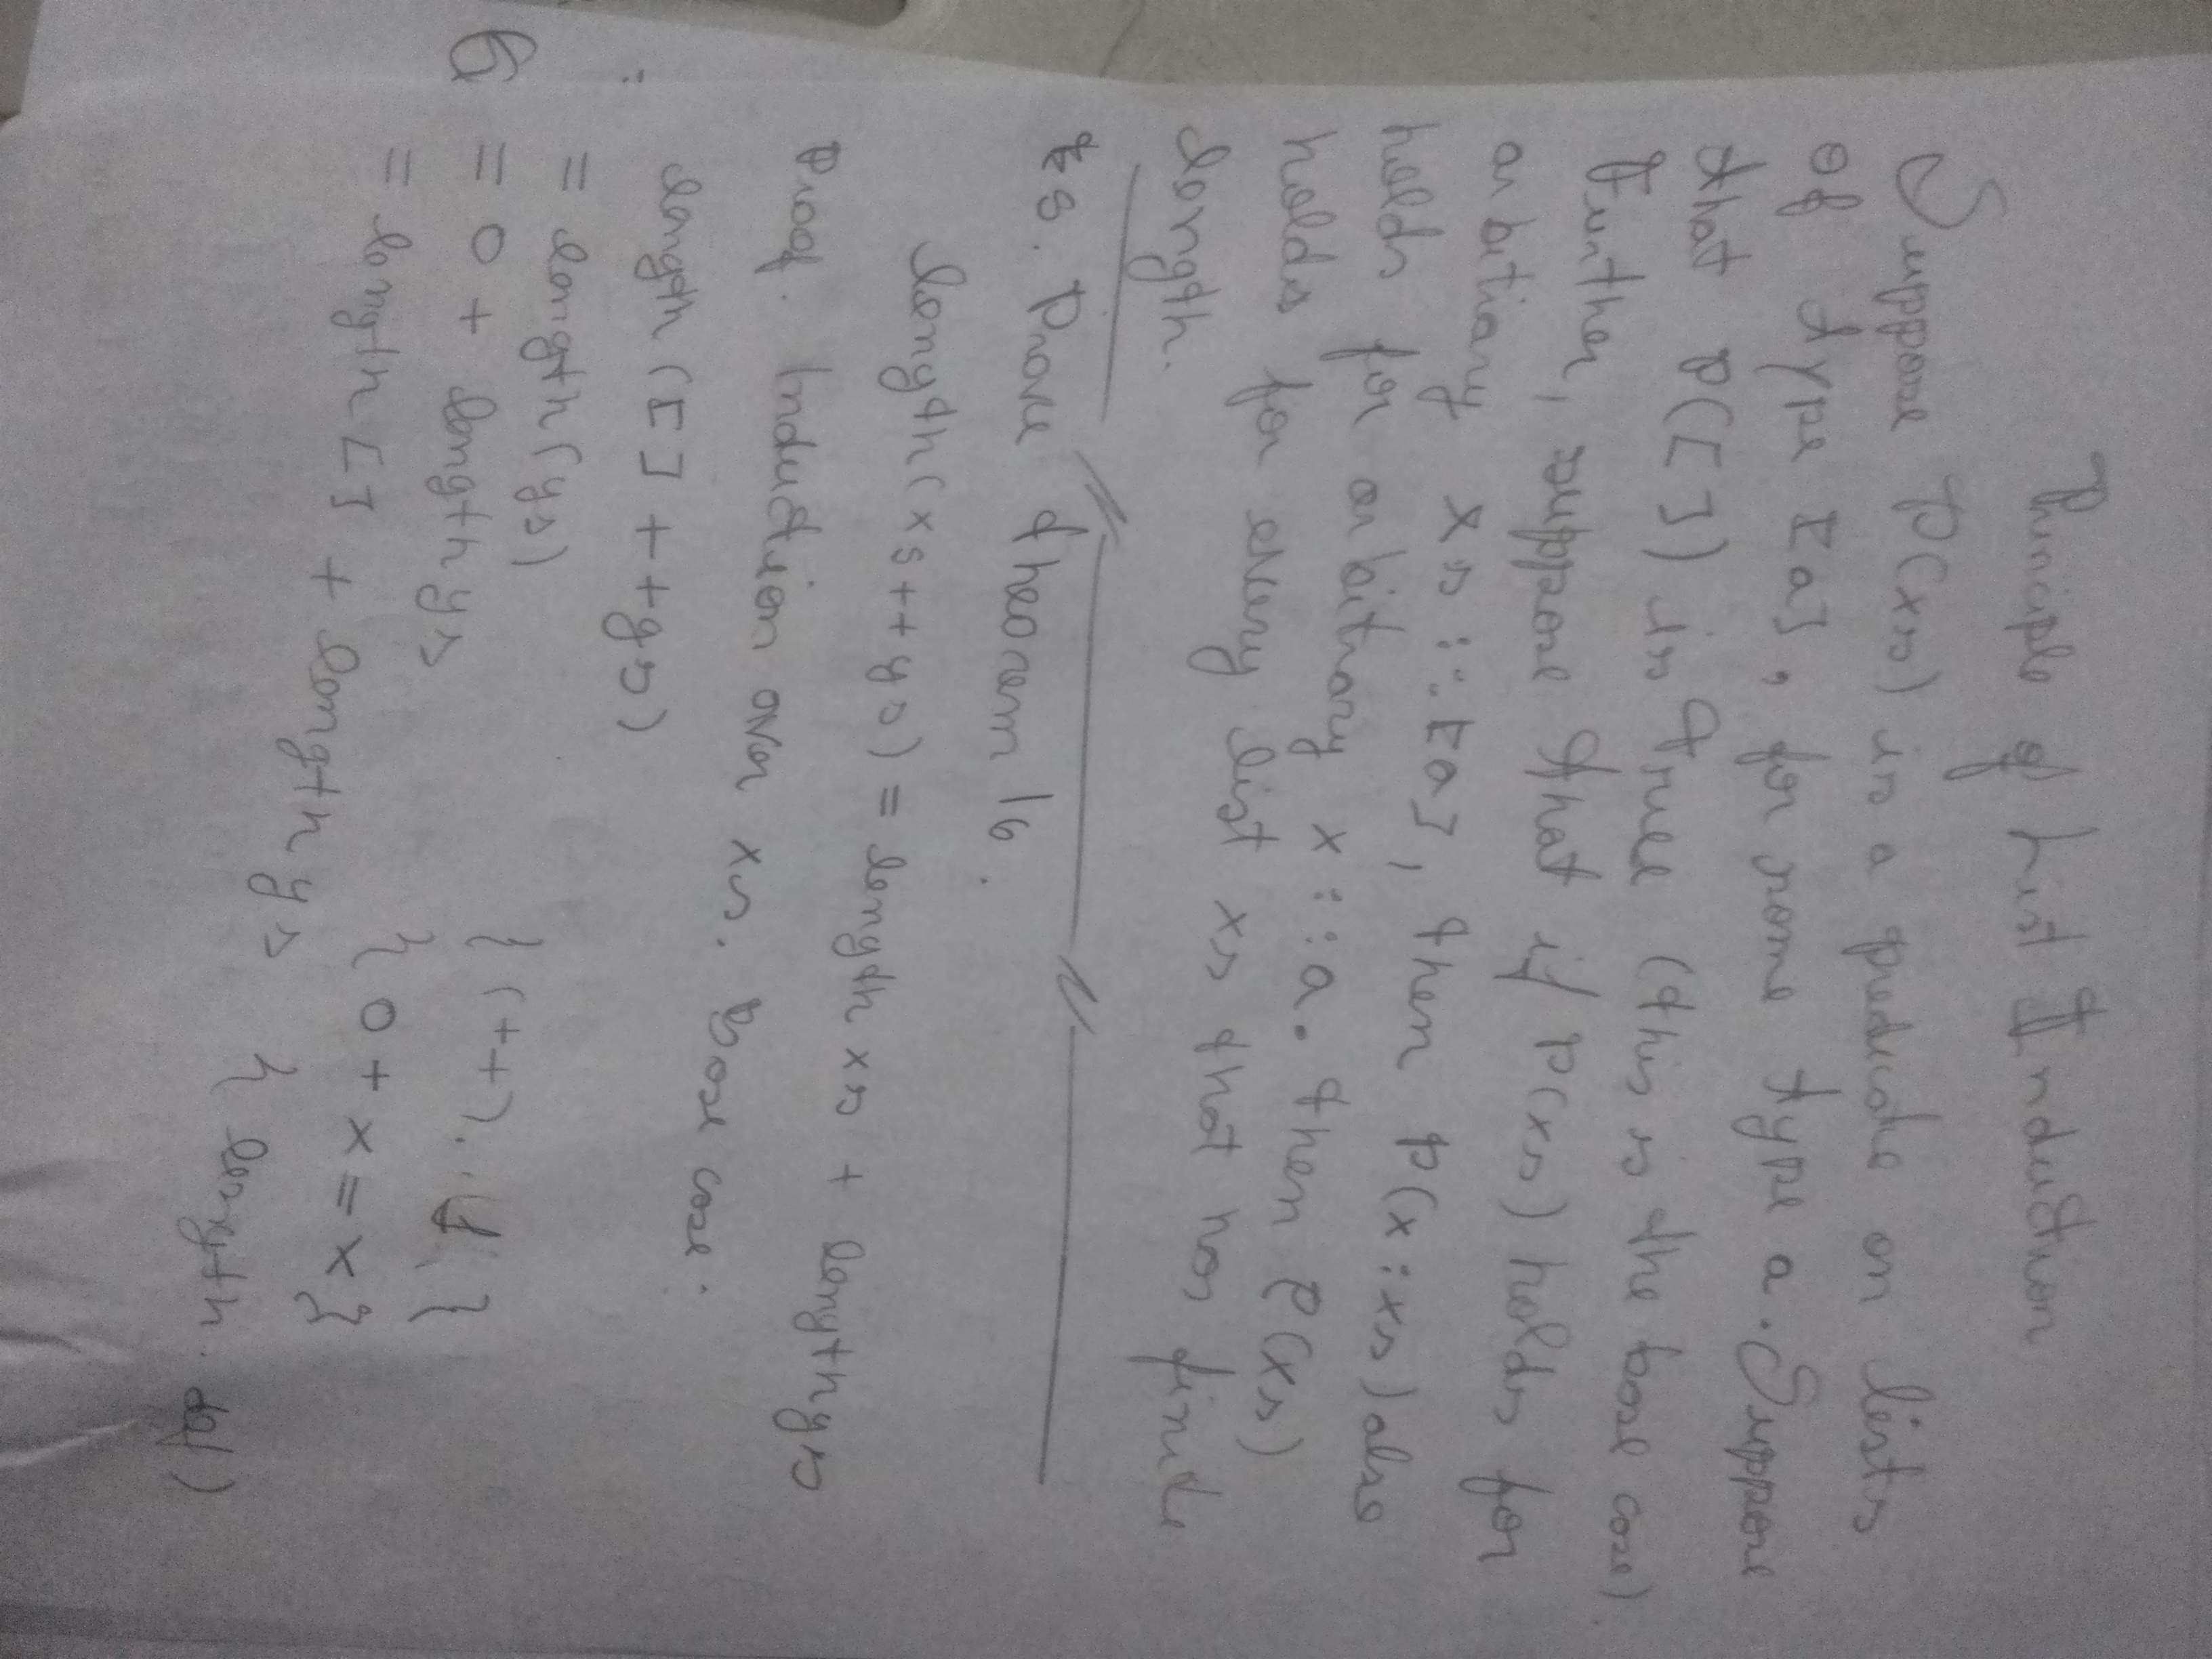 Principle of List Induction
Suppose P(xs) is a predicate on lists
of type [a], for some type a. Suppose
that P([]) is True (this is the base case).
Further, suppose that if P(xs) holds for
arbitrary xs :: [a], then P(x:xs) also
holds for arbitrary x::a. then P(xs)
holds for every list xs that has finite
length.
Prove theorem 16.
length(xs++ys) = length xs + length ys
Proof. Induction over xs. Base case:
length ([] ++ys)
= length(ys) { (++). 1 }
6 = 0 + length ys { 0 + x = x }
= length [] + length ys { length. def)